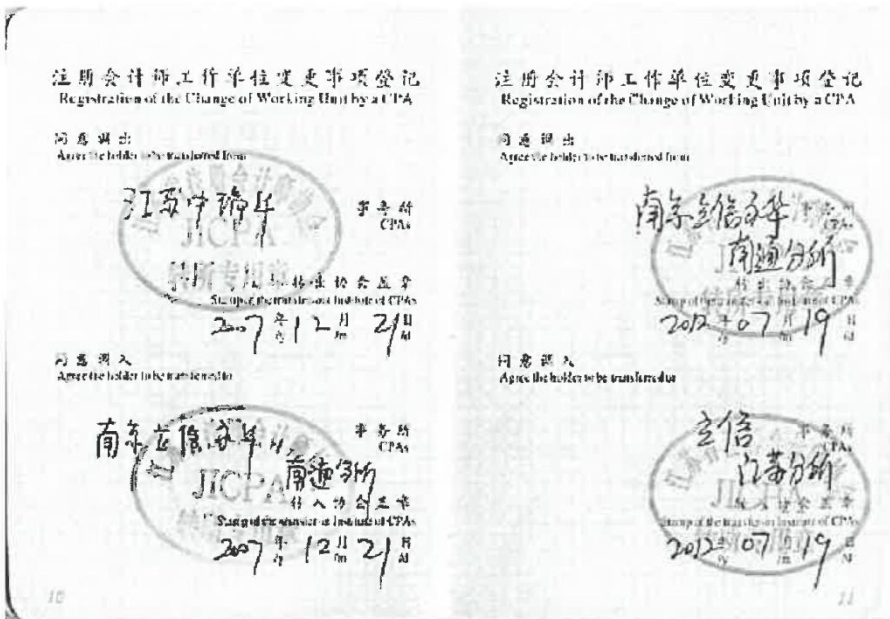 注册会计师工作单位变更事项登记
Registration of the Change of Working Unit by a CPA
同意调出
Agree the holder to be transferred from
江苏中瑞华
事务所
CPAs
JICPA
转所专用章
转出协会盖章
Stamp of the transfer-out Institute of CPAs
2007年12月21日
/y /m /d
同意调入
Agree the holder to be transferred to
南京立信永华
事务所
CPAs
南通分所
JICPA
转入协会盖章
Stamp of the transfer-in Institute of CPAs
2007年12月21日
/y /m /d
10
注册会计师工作单位变更事项登记
Registration of the Change of Working Unit by a CPA
同意调出
Agree the holder to be transferred from
南京立信永华
所
CPAs
南通分所
转出协会盖章
Stamp of the transfer-out Institute of CPAs
2012年07月19日
/y /m /d
同意调入
Agree the holder to be transferred to
立信
事务所
CPAs
江苏分所
转入协会盖章
Stamp of the transfer-in Institute of CPAs
2012年07月19日
/y /m /d
11